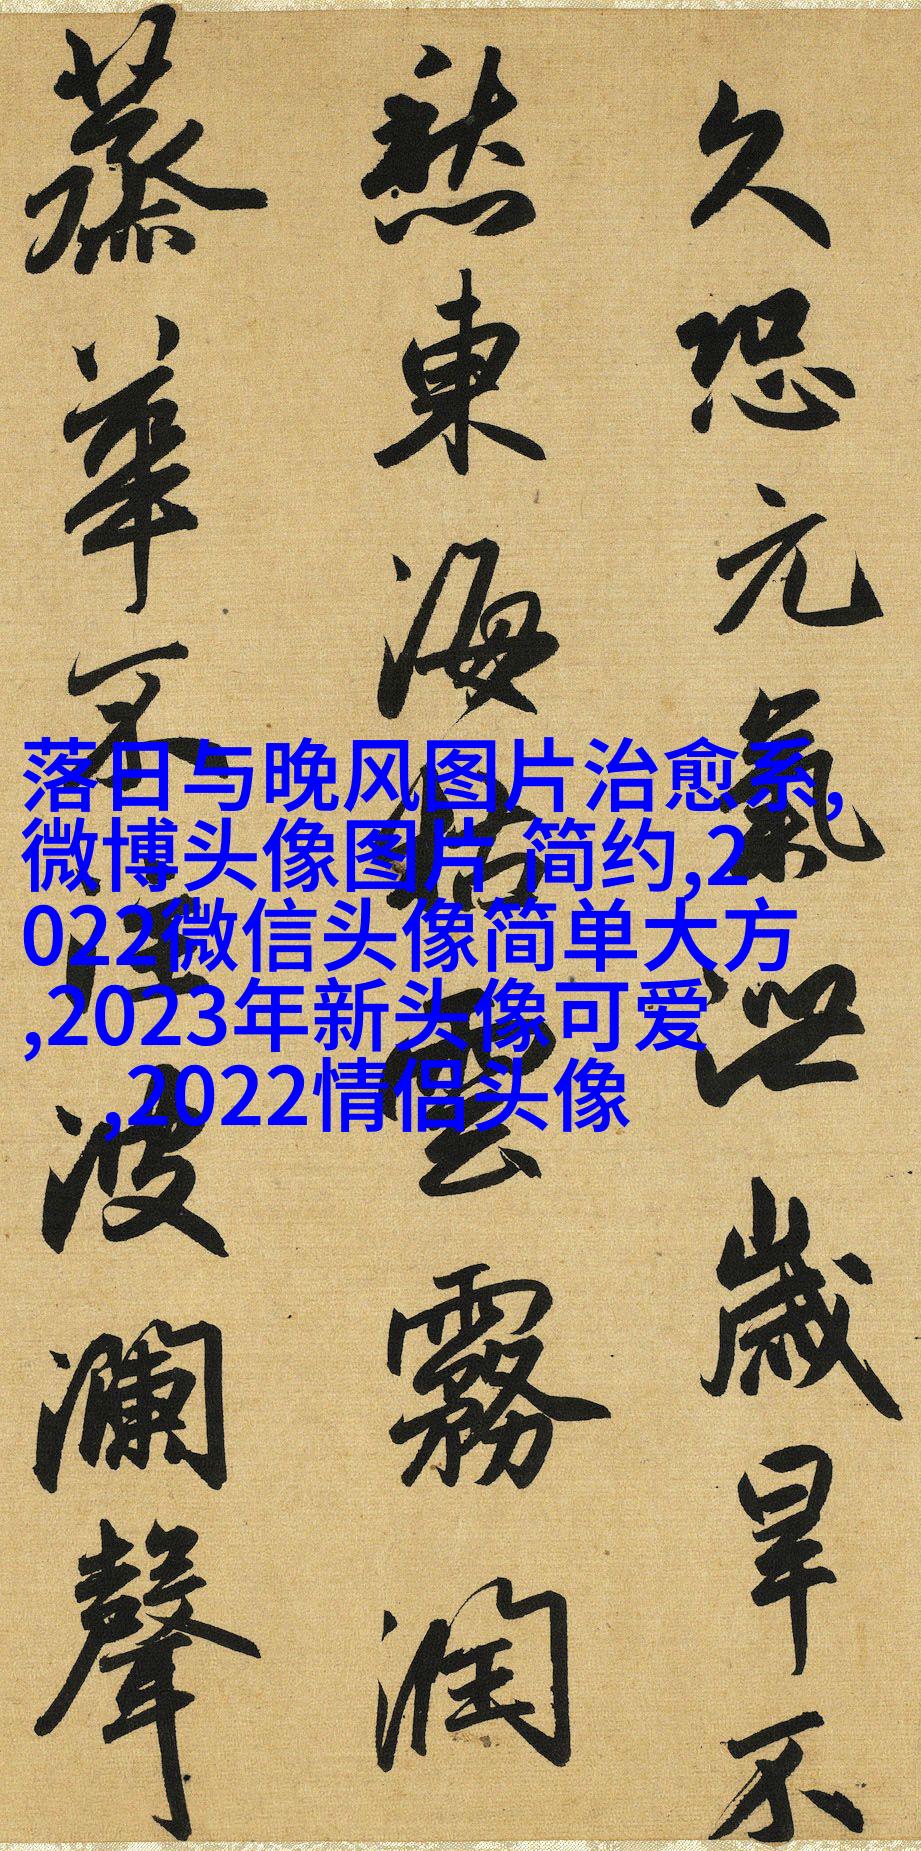 久恐元氣泄歲旱不
愁東海枯雲霧潤
蒸華不注波瀾聲
落日与晚风图片治愈系,
微博头像图片 简约,2
022微信头像简单大方
,2023年新头像可爱
,2022情侣头像